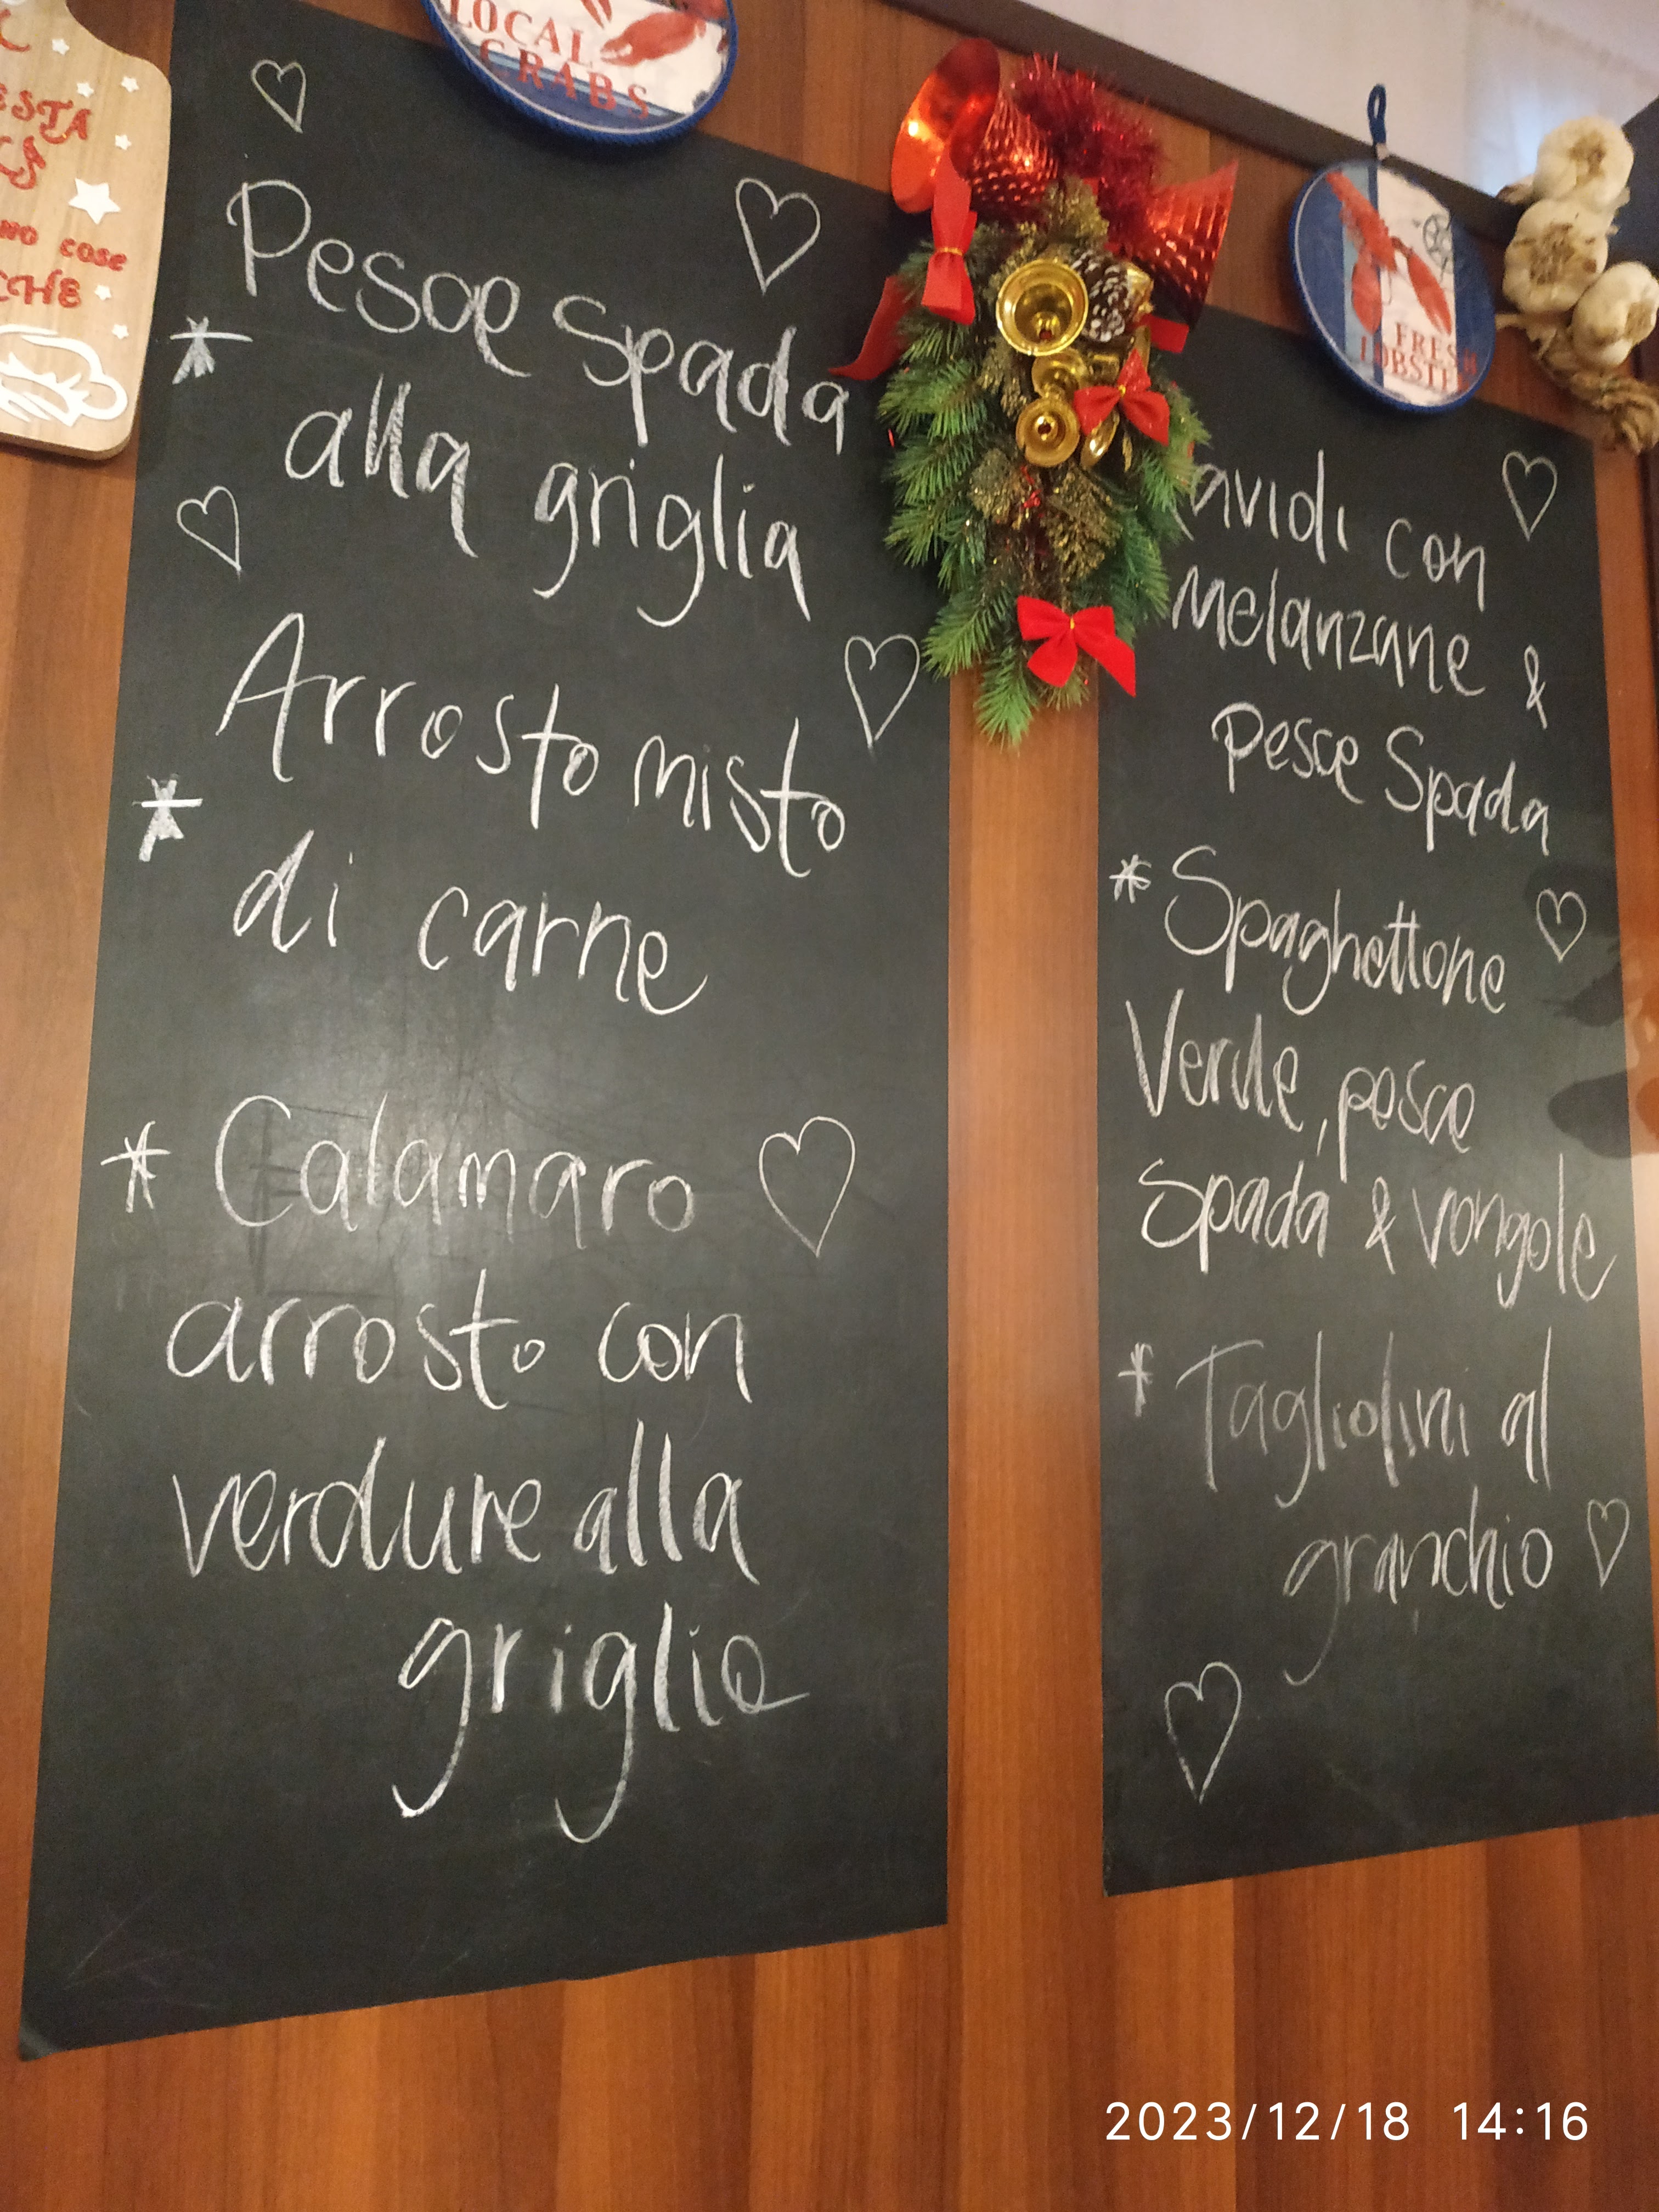 LOCAL
CRABS
ESTA
NO COSE
CHE
Pesce Spada
* alla griglia
Arrosto misto
* di carne
* Calamaro
arrosto con
verdure alla
griglia
FRESH
LOBSTE
avidi con
Melanzane &
pesce Spada
* Spaghettone
Verde, pesce
Spada & vongole
* Tagliolini al
granchio
2023/12/18 14:16